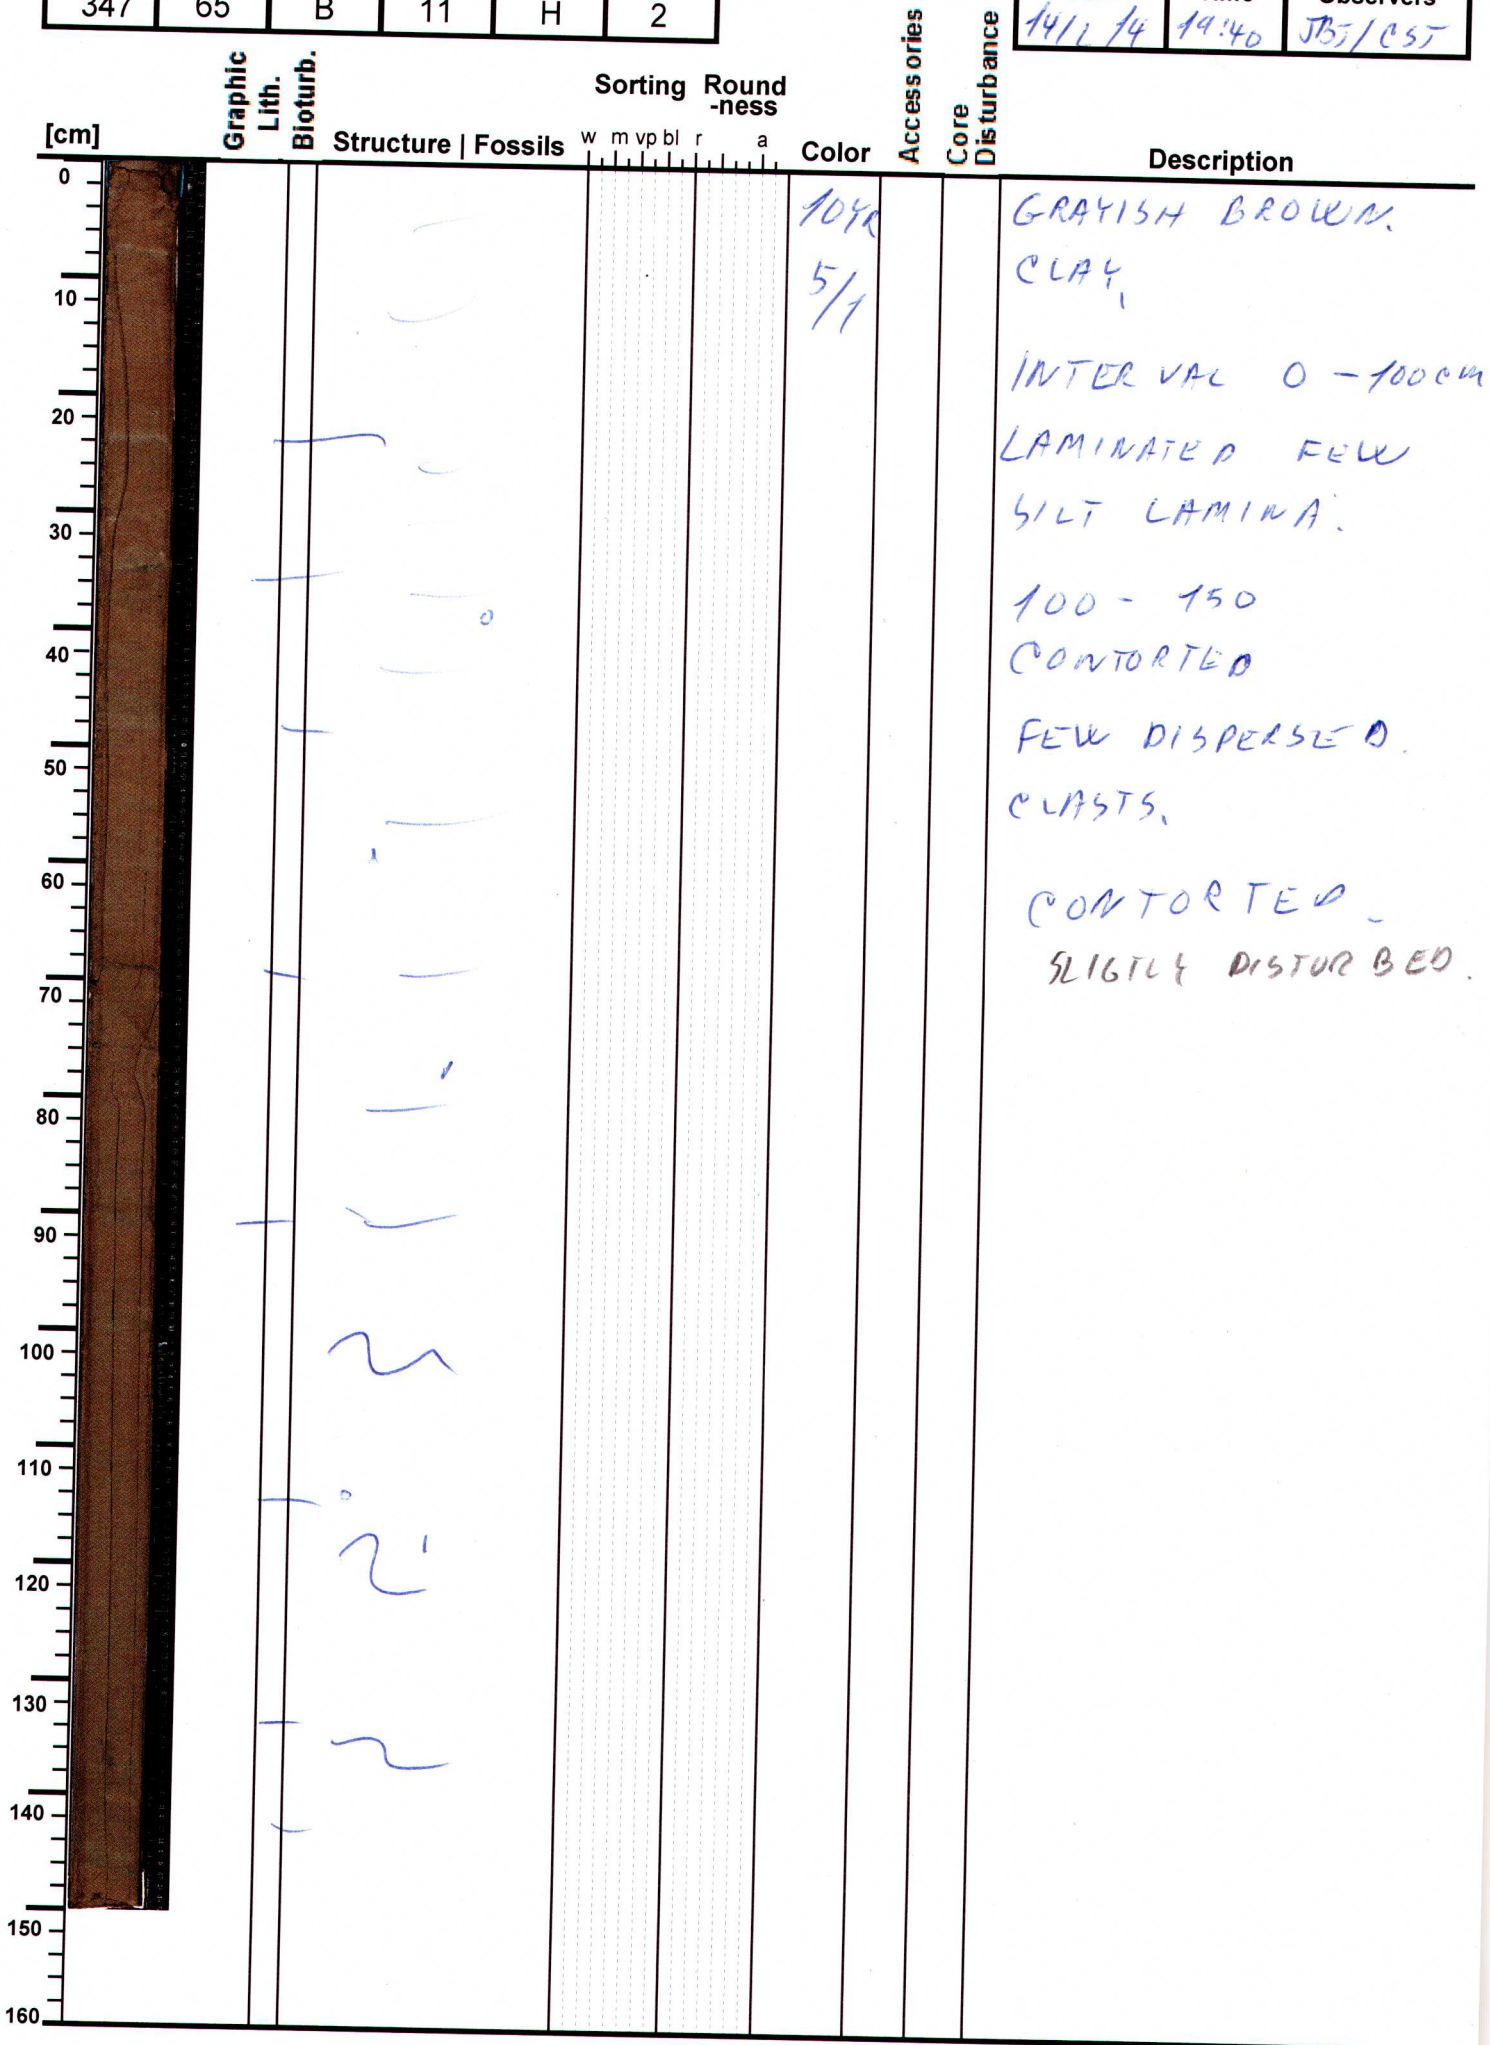 347 65 B 11 H 2
14/2/14 19:40 JBJ/CSJ
Observers
Graphic Lith.
Bioturb.
Structure | Fossils
Sorting
Round -ness
w m vp bl r a
Color
Accessories
Core Disturbance
Description
[cm]
0
10
20
30
40
50
60
70
80
90
100
110
120
130
140
150
160
10YR
5/1
GRAYISH BROWN.
CLAY,
INTERVAL 0 - 100 cm
LAMINATED FEW
SILT LAMINA.
100 - 150
CONTORTED
FEW DISPERSED.
CLASTS.
CONTORTED -
SLIGTLY DISTURBED.